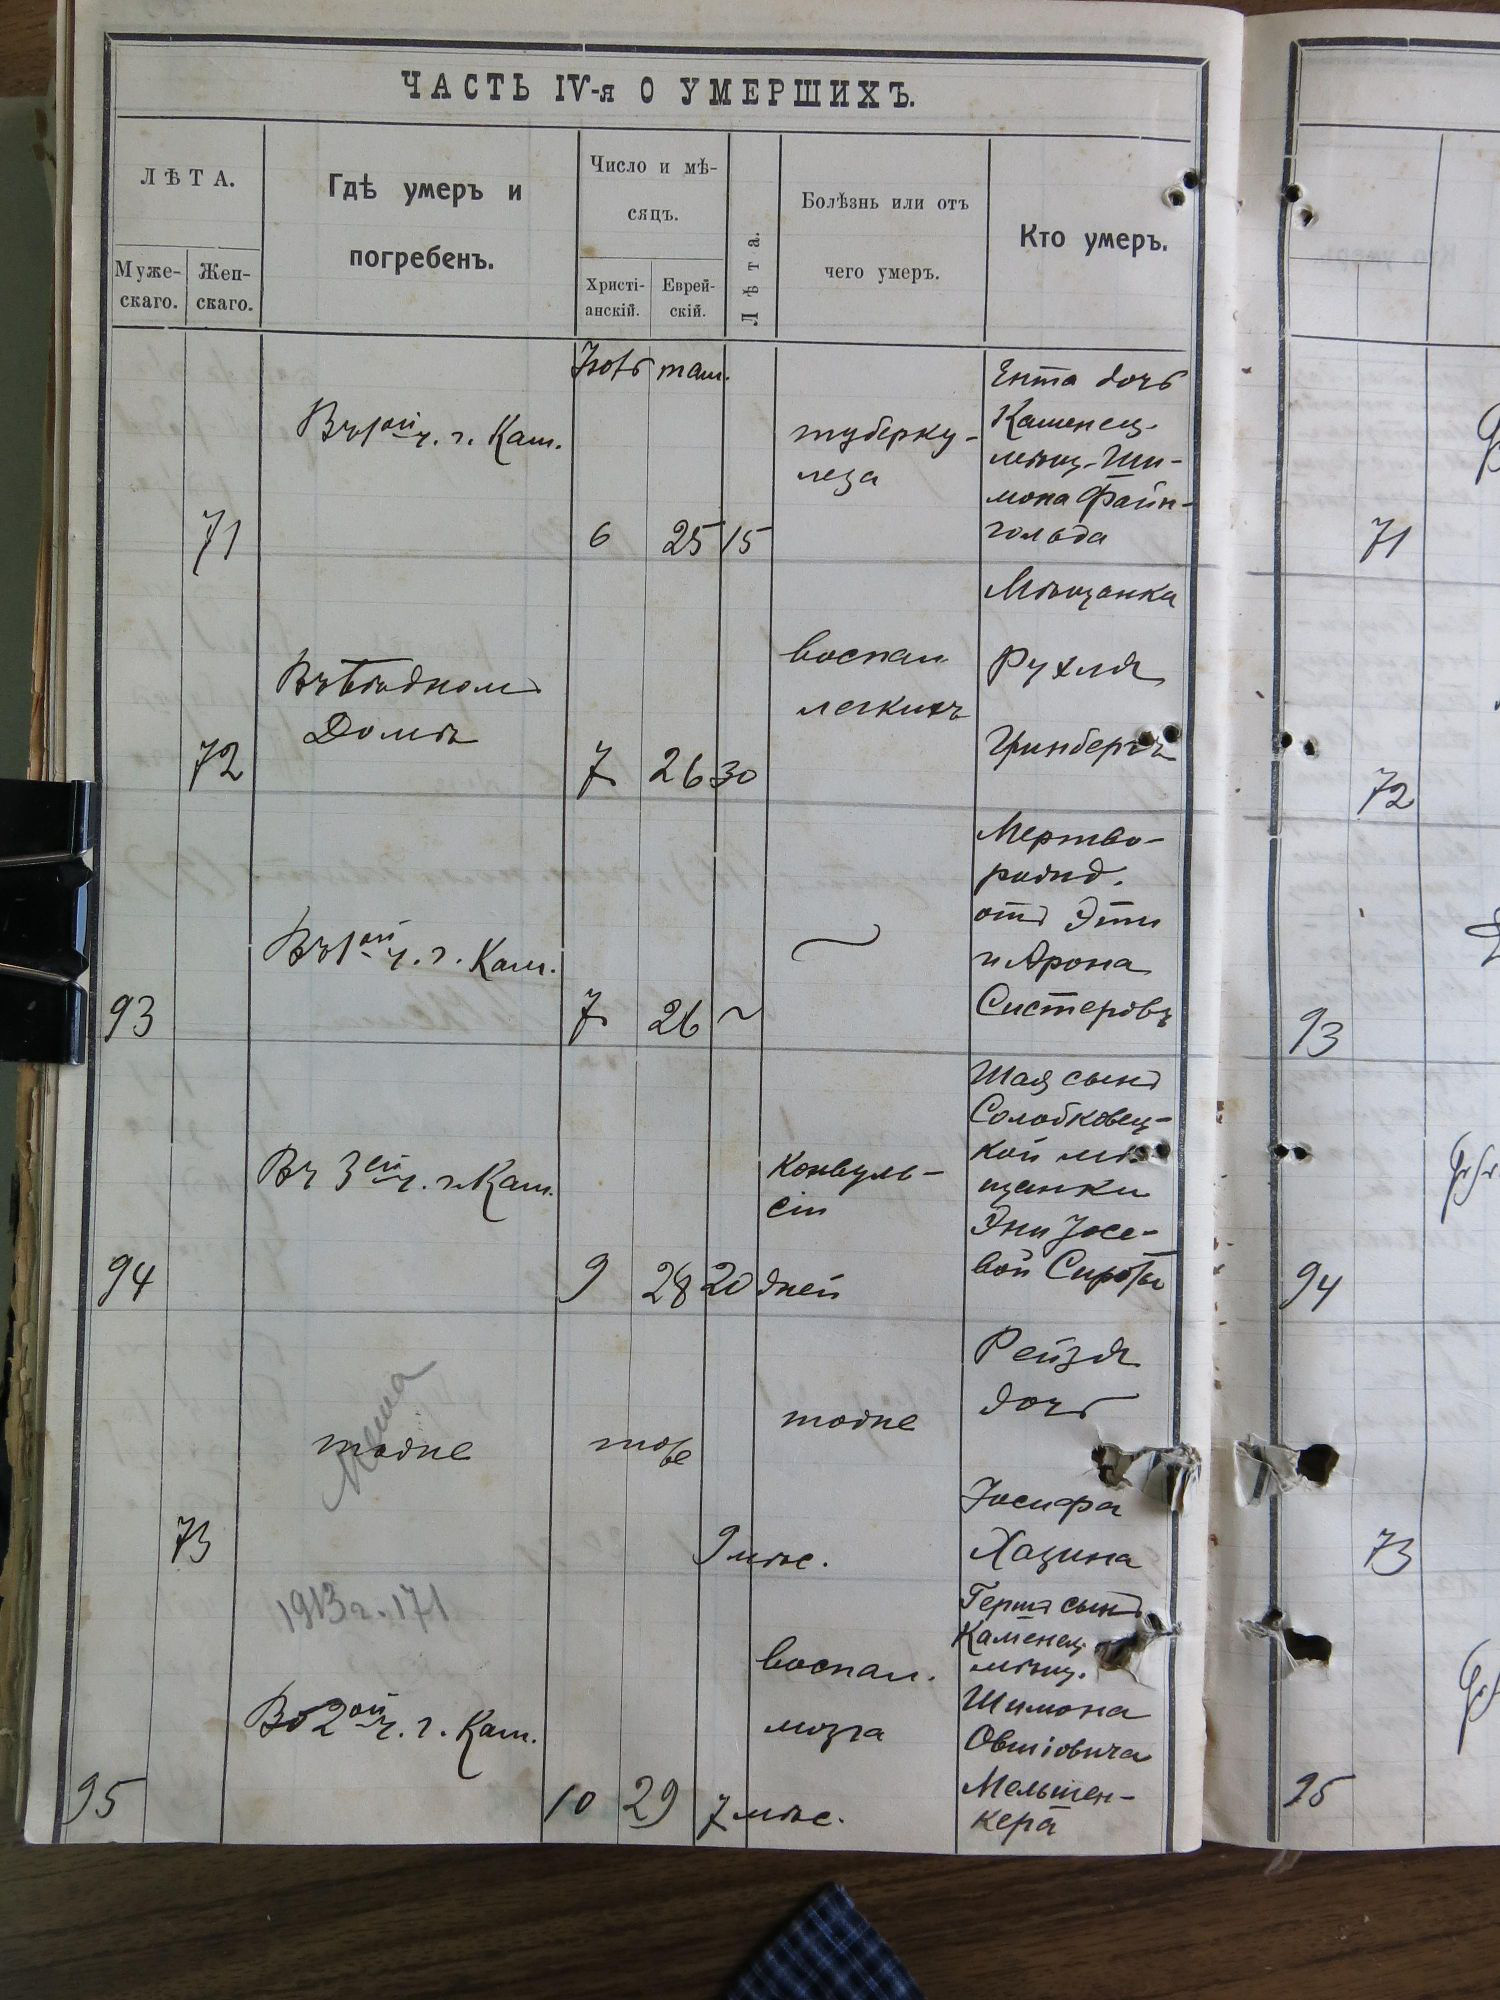 ЧАСТЬ IV-я О УМЕРШИХЪ.
ЛѢТА.
Муже-
скаго.
Жен-
скаго.
Гдѣ умеръ и
погребенъ.
Число и мѣ-
сяцъ.
Христі-
анскій.
Еврей-
скій.
Лѣта.
Болѣзнь или отъ
чего умеръ.
Кто умеръ.
Іюль там.
71
Въ 1ой ч. г. Кам.
6 25 15
туберку-
леза
Ента дочь
Каменец.
мѣщ. Ши-
мона Файн-
гольда
72
Въ Бѣдном
Домѣ
7 26 30
воспал
легкихъ
Мѣщанка
Рухля
Гринбергъ
93
Въ 1ой ч. г. Кам.
7 26 ~
Мертво-
рожд.
отъ Эти
и Арона
Систеровъ
94
Въ 3ей ч. г. Кам.
9 28 20 дней
Конвуль-
сіи
Шая сынъ
Солобковец-
кой мѣ
щанки
Эни Іосе-
вой Сироты
73
тоже
Меша
тоже
9 мѣс.
тоже
Рейзя
дочь
Іосифа
Хазина
1913 г. 171
95
Во 2ой ч. г. Кам.
10 29 7 мѣс.
воспал.
мозга
Гершъ сынъ
Каменец.
мѣщ.
Шимона
Овшіовича
Мельшен-
кера
71
72
93
94
73
95